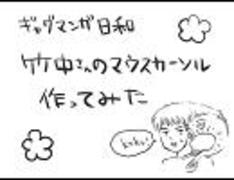 ギャグマンガ日和
竹中さんのマウスカーソル
作ってみた